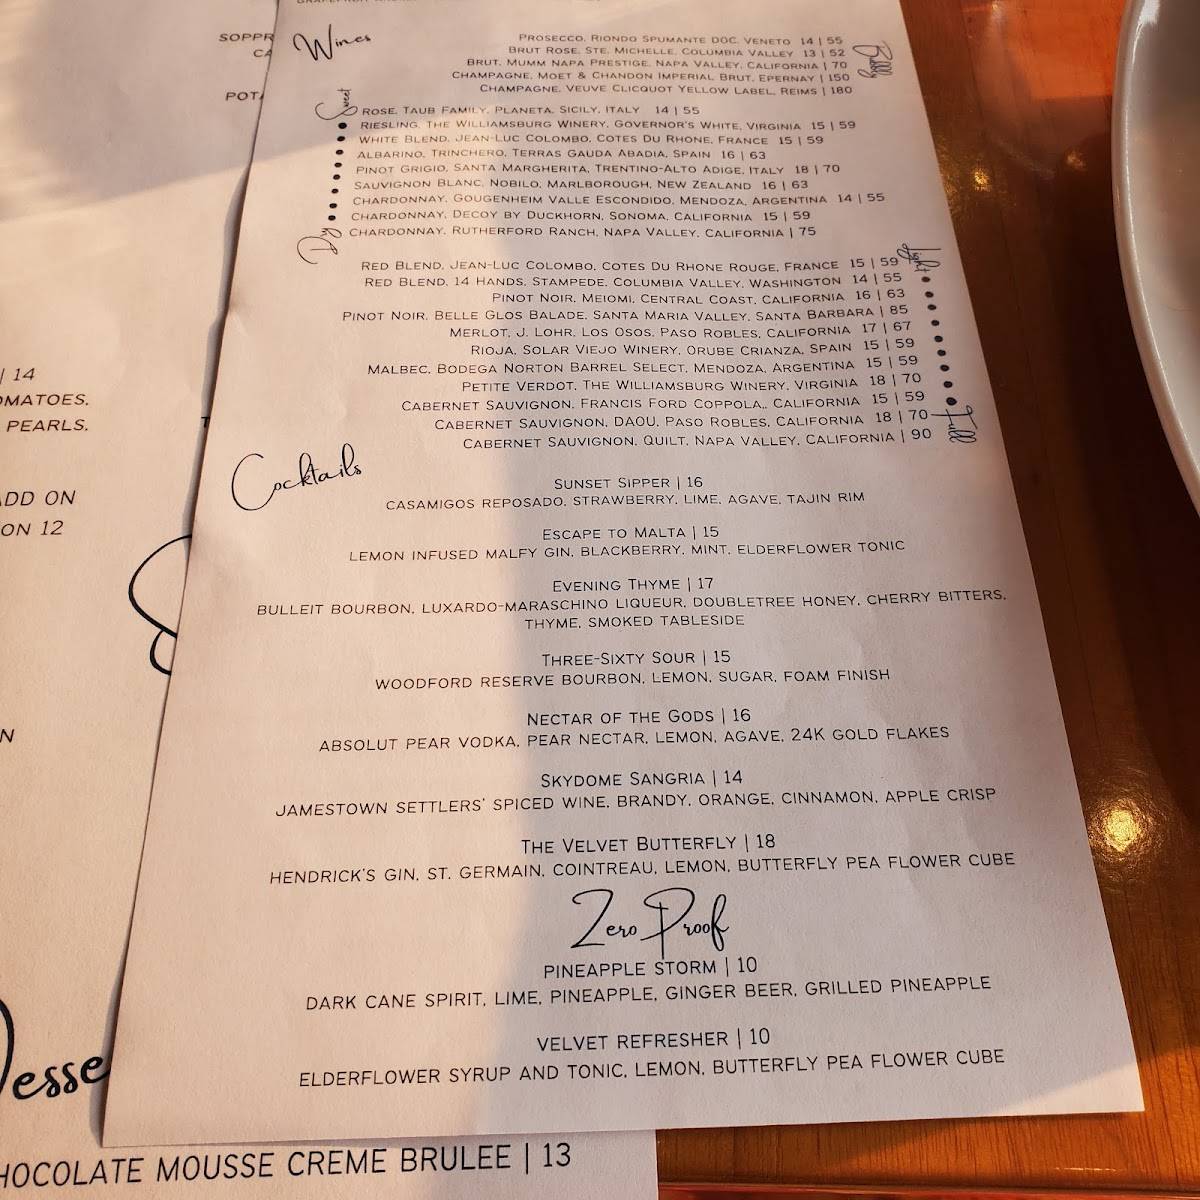 SOPPR
CA
POTA
| 14
OMATOES,
PEARLS,
ADD ON
ON 12
N
Desse
HOCOLATE MOUSSE CREME BRULEE | 13
Wines
Bubbly
PROSECCO, RIONDO SPUMANTE DOC, VENETO 14 | 55
BRUT ROSE, STE. MICHELLE, COLUMBIA VALLEY 13 | 52
BRUT, MUMM NAPA PRESTIGE, NAPA VALLEY, CALIFORNIA | 70
CHAMPAGNE, MOET & CHANDON IMPERIAL BRUT, EPERNAY | 150
CHAMPAGNE, VEUVE CLICQUOT YELLOW LABEL, REIMS | 180
Sweet
ROSE, TAUB FAMILY, PLANETA, SICILY, ITALY 14 | 55
RIESLING, THE WILLIAMSBURG WINERY, GOVERNOR'S WHITE, VIRGINIA 15 | 59
WHITE BLEND, JEAN-LUC COLOMBO, COTES DU RHONE, FRANCE 15 | 59
ALBARINO, TRINCHERO, TERRAS GAUDA ABADIA, SPAIN 16 | 63
PINOT GRIGIO, SANTA MARGHERITA, TRENTINO-ALTO ADIGE, ITALY 18 | 70
SAUVIGNON BLANC, NOBILO, MARLBOROUGH, NEW ZEALAND 16 | 63
CHARDONNAY, GOUGENHEIM VALLE ESCONDIDO, MENDOZA, ARGENTINA 14 | 55
CHARDONNAY, DECOY BY DUCKHORN, SONOMA, CALIFORNIA 15 | 59
CHARDONNAY, RUTHERFORD RANCH, NAPA VALLEY, CALIFORNIA | 75
Dry
Light
RED BLEND, JEAN-LUC COLOMBO, COTES DU RHONE ROUGE, FRANCE 15 | 59
RED BLEND, 14 HANDS, STAMPEDE, COLUMBIA VALLEY, WASHINGTON 14 | 55
PINOT NOIR, MEIOMI, CENTRAL COAST, CALIFORNIA 16 | 63
PINOT NOIR, BELLE GLOS BALADE, SANTA MARIA VALLEY, SANTA BARBARA | 85
MERLOT, J. LOHR, LOS OSOS, PASO ROBLES, CALIFORNIA 17 | 67
RIOJA, SOLAR VIEJO WINERY, ORUBE CRIANZA, SPAIN 15 | 59
MALBEC, BODEGA NORTON BARREL SELECT, MENDOZA, ARGENTINA 15 | 59
PETITE VERDOT, THE WILLIAMSBURG WINERY, VIRGINIA 18 | 70
CABERNET SAUVIGNON, FRANCIS FORD COPPOLA,, CALIFORNIA 15 | 59
CABERNET SAUVIGNON, DAOU, PASO ROBLES, CALIFORNIA 18 | 70
CABERNET SAUVIGNON, QUILT, NAPA VALLEY, CALIFORNIA | 90
Full
Cocktails
SUNSET SIPPER | 16
CASAMIGOS REPOSADO, STRAWBERRY, LIME, AGAVE, TAJIN RIM
ESCAPE TO MALTA | 15
LEMON INFUSED MALFY GIN, BLACKBERRY, MINT, ELDERFLOWER TONIC
EVENING THYME | 17
BULLEIT BOURBON, LUXARDO-MARASCHINO LIQUEUR, DOUBLETREE HONEY, CHERRY BITTERS,
THYME, SMOKED TABLESIDE
THREE-SIXTY SOUR | 15
WOODFORD RESERVE BOURBON, LEMON, SUGAR, FOAM FINISH
NECTAR OF THE GODS | 16
ABSOLUT PEAR VODKA, PEAR NECTAR, LEMON, AGAVE, 24K GOLD FLAKES
SKYDOME SANGRIA | 14
JAMESTOWN SETTLERS' SPICED WINE, BRANDY, ORANGE, CINNAMON, APPLE CRISP
THE VELVET BUTTERFLY | 18
HENDRICK'S GIN, ST. GERMAIN, COINTREAU, LEMON, BUTTERFLY PEA FLOWER CUBE
Zero Proof
PINEAPPLE STORM | 10
DARK CANE SPIRIT, LIME, PINEAPPLE, GINGER BEER, GRILLED PINEAPPLE
VELVET REFRESHER | 10
ELDERFLOWER SYRUP AND TONIC, LEMON, BUTTERFLY PEA FLOWER CUBE